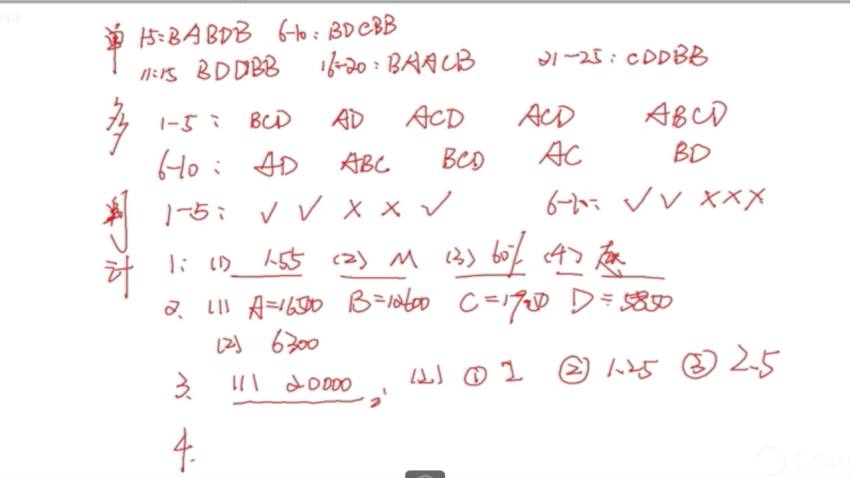 单 1-5: BABDB 6-10: BDCBB
11-15 BDDBB 16-20: BAACB 21-25: CDDBB
多 1-5: BCD AD ACD ACD ABCD
6-10: AD ABC BCD AC BD
判 1-5: √ √ × × √ 6-10: √ √ × × ×
计 1: (1) 1.55 (2) M (3) 60% (4)
2. (1) A=16500 B=12600 C= D=5850
(2) 6300
3. (1) 20000, (2) ① 2 ② 1.25 ③ 2.5
4.